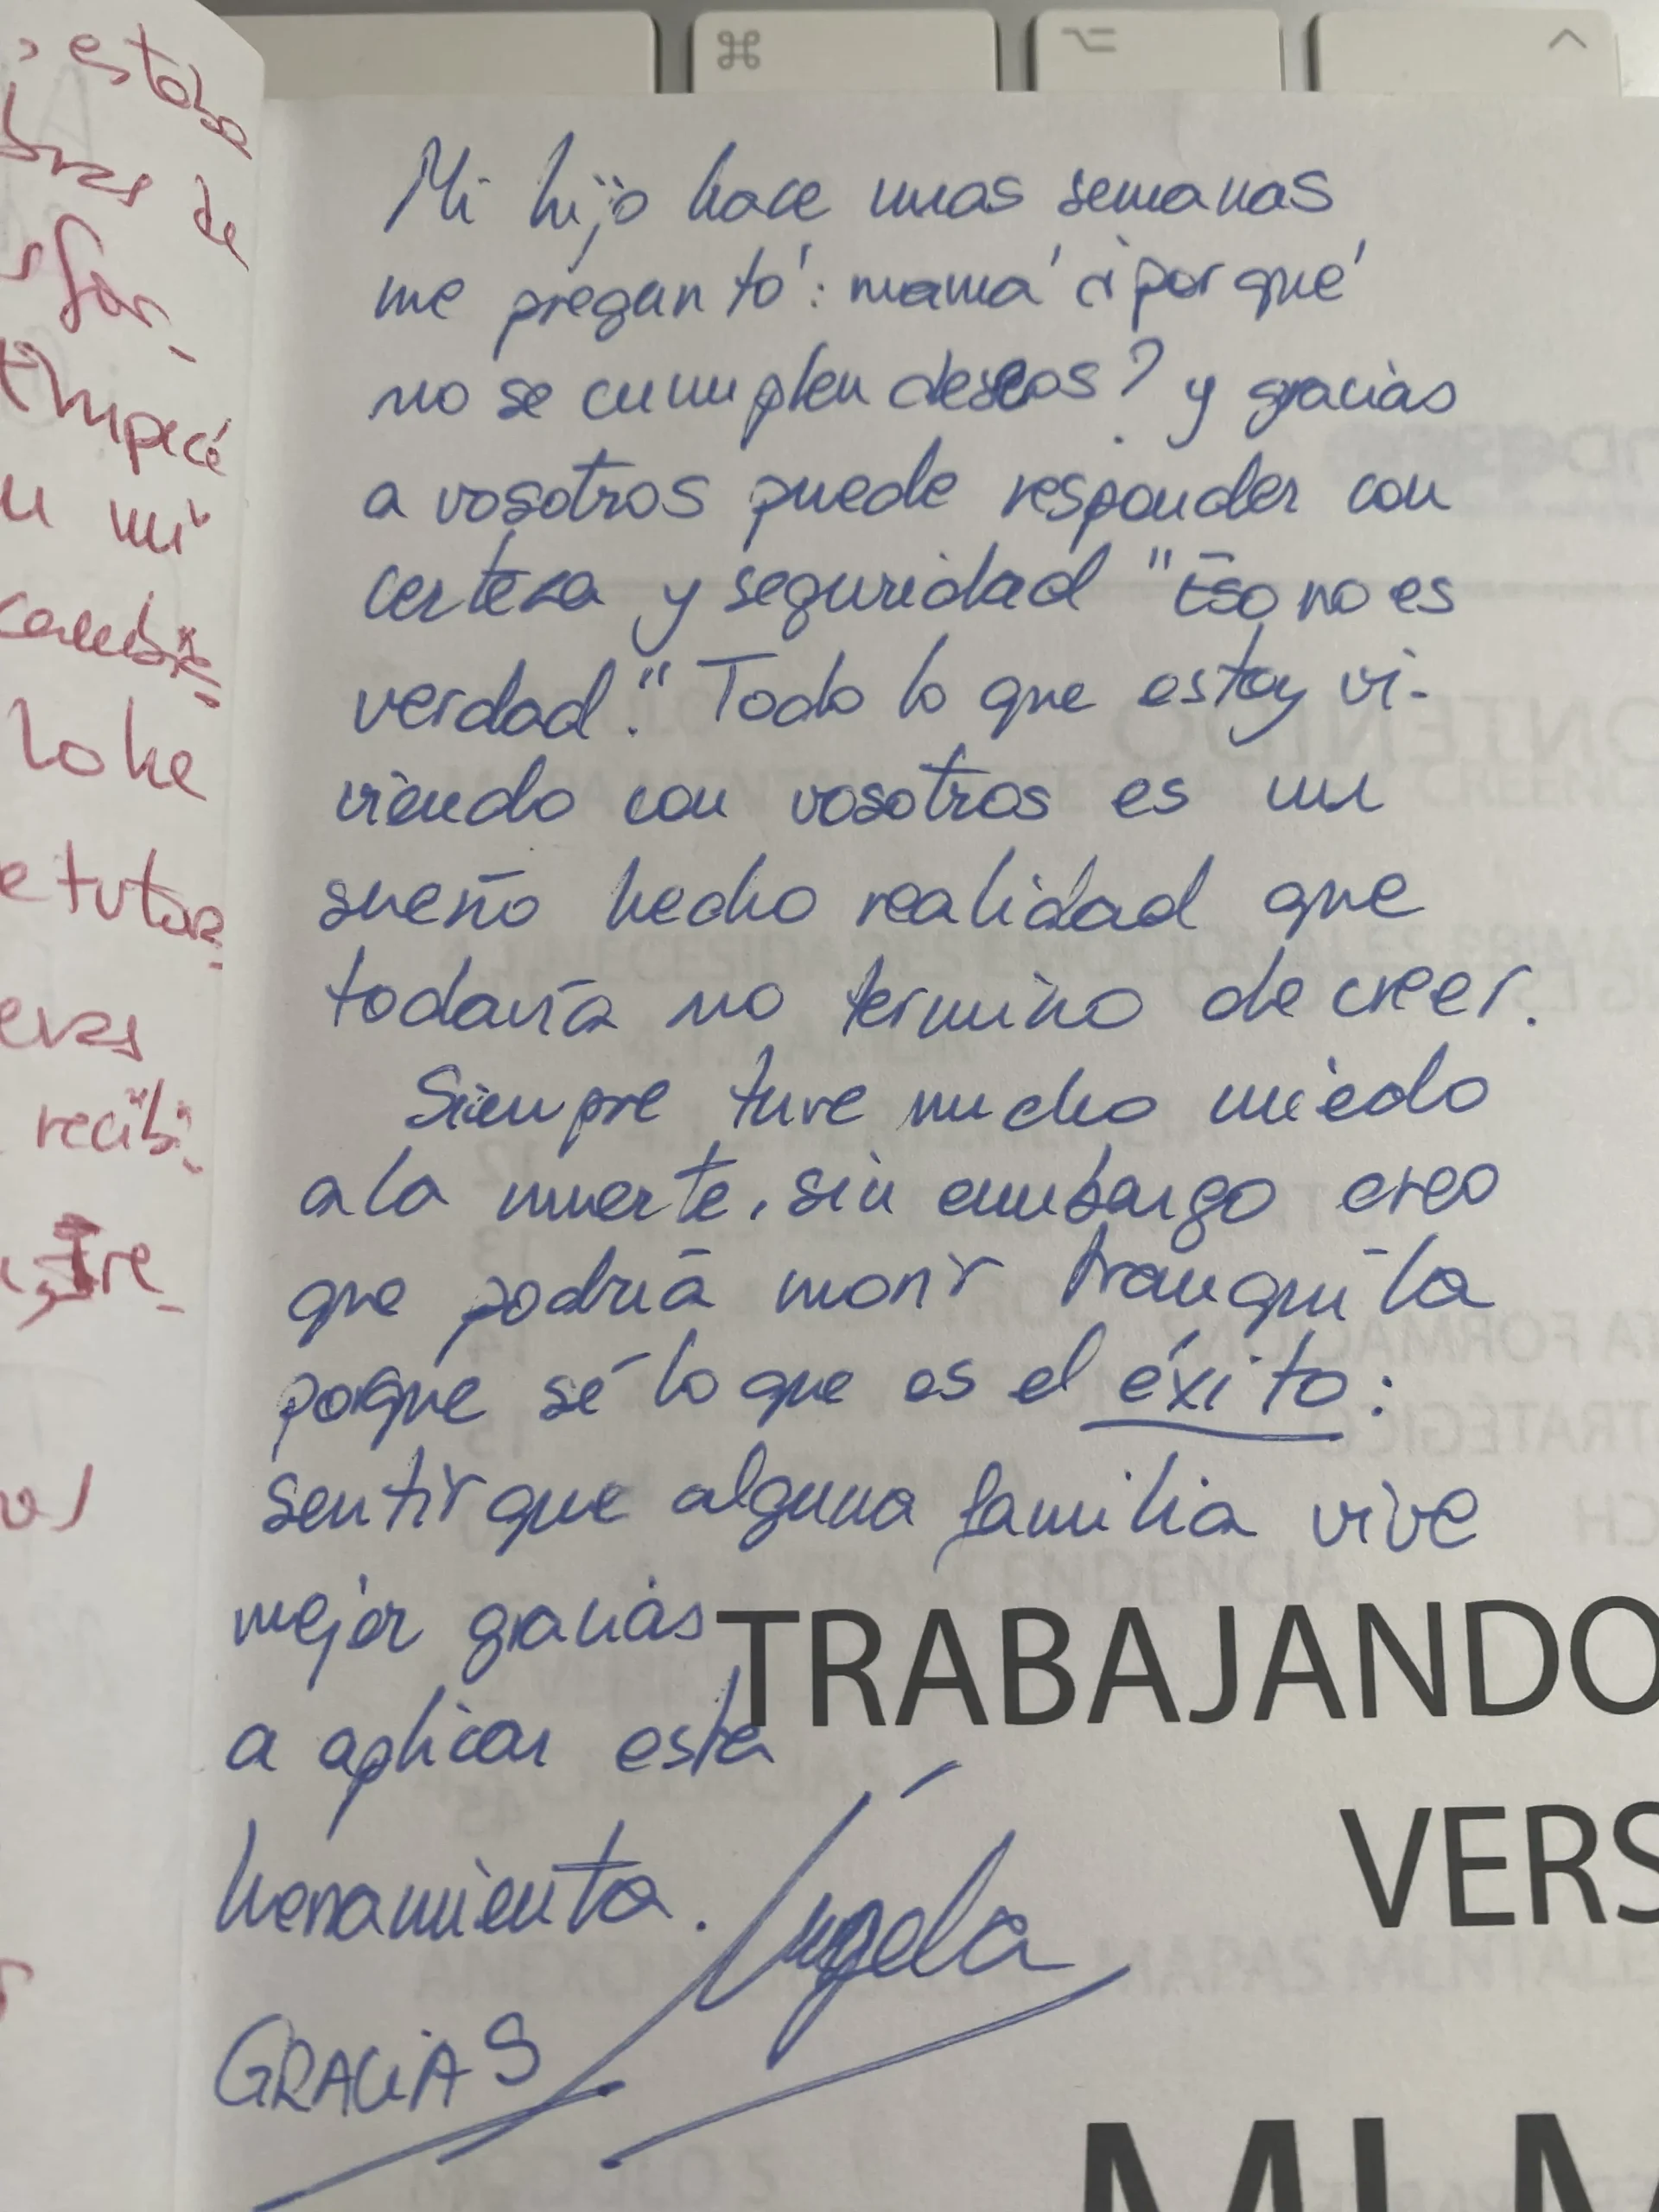 estaba
de
for-
empecé
mi
lo he
recibi-
Mi hijo hace unas semanas
me preguntó: mamá ¿por qué
no se cumplen deseos? y gracias
a vosotros puede responder con
certeza y seguridad "Eso no es
verdad." Todo lo que estoy vi-
viendo con vosotros es un
sueño hecho realidad que
todavía no termino de creer.
Siempre tuve mucho miedo
a la muerte, sin embargo creo
que podría morir tranquila
porque sé lo que es el éxito:
sentir que alguna familia vive
mejor gracias
a aplicar esta
herramienta.
Ángela
GRACIAS
TRABAJANDO
VERS
MI M